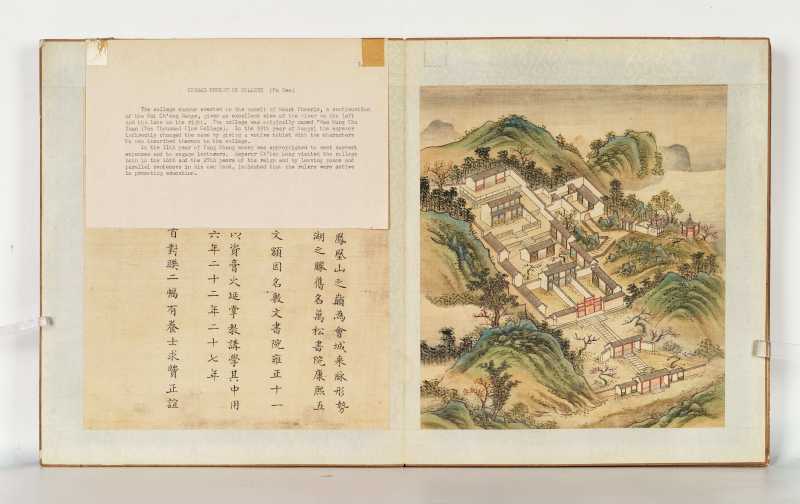 (Fu Wen)
The college campus erected on the summit of Mount Phoenix, a continuation
of the Hui Ch'eng Range, gives an excellent view of the river on the left
and the lake on the right. The college was originally named "Wan Sung Shu
Yuan (Ten Thousand Pine College). In the 55th year of Kangsi the emperor
inherently changed the name by giving a votive tablet with the characters
inscribed thereon to the college.
In the 11th year of Yung Cheng money was appropriated to meet current
expenses and to engage lecturers. Emperor Ch'ien Lung visited the college
both in the 16th and the 27th years of his reign and by leaving poems and
parallel sentences in his own hand, indicated that the rulers were active
in promoting education.
鳳凰山之巔為會城來脉形勢
湖之勝舊名萬松書院康熙五
文額因名敷文書院雍正十一
以資膏火延掌教講學其中用
六年二十二年二十七年
有對聯二幅有養士求賢正誼